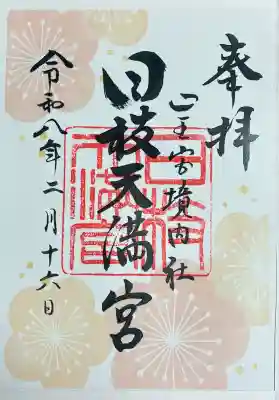 奉拝
山王宮境内社
日枝天満宮
令和八年二月十六日